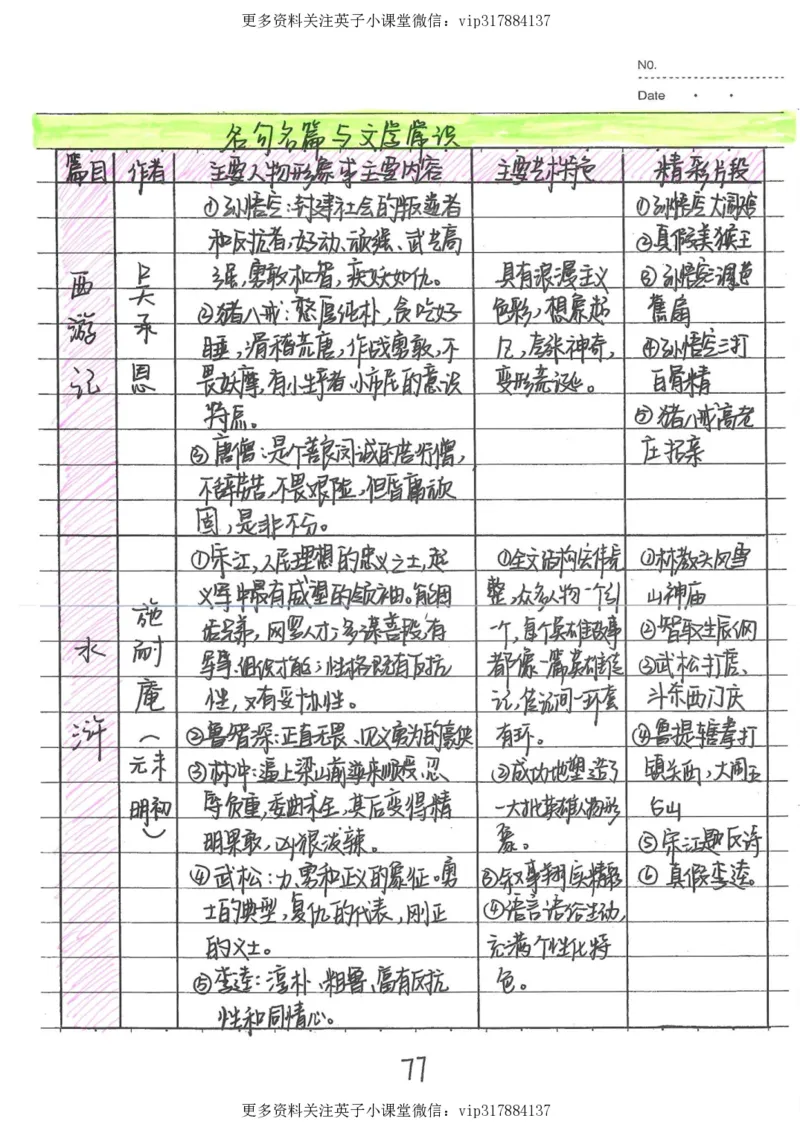 更多资料关注英子小课堂微信：vip317884137
NO.
Date
名句名篇与文学常识
篇目 作者 主要人物形象或主要内容 主要艺术特色 精彩片段
西游记
吴承恩
①孙悟空：封建社会的叛逆者
和反抗者，好动、顽强、武艺高
强，勇敢机智，疾妖如仇。
②猪八戒：憨厚纯朴，贪吃好
睡，滑稽荒唐，作战勇敢，不
畏妖魔，有小生产者、小市民的意识
特点。
③唐僧：是个善良虔诚的苦行僧，
不辞劳苦，不畏艰险，但昏庸顽
固，是非不分。
具有浪漫主义
色彩，想象超
凡，夸张神奇，
变形荒诞。
①孙悟空大闹天宫
②真假美猴王
③孙悟空三调芭
蕉扇
④孙悟空三打
白骨精
⑤猪八戒高老
庄招亲
水浒
施耐庵（元末明初）
①宋江，人民理想的忠义之士，起
义军中最有威望的领袖。能团
结兄弟，网罗人才；多谋善段，有
军事、组织才能；性格既有反抗
性，又有妥协性。
②鲁智深：正直无畏、见义勇为的豪侠
③林冲：逼上梁山前逆来顺受、忍
辱负重，委曲求全，其后变得精
明果敢，凶狠泼辣。
④武松：力、勇和正义的象征。勇
士的典型，复仇的代表，刚正
的义士。
⑤李逵：淳朴、粗鲁、富有反抗
性和同情心。
①全文结构宏伟完
整，众多人物一个引
一个，每个英雄故事
都像一篇英雄传
记，情节间一环套
有环。
②成功地塑造了
一大批英雄人物形
象。
③叙事翔实精彩
④语言语俗生动，
充满个性化特
色。
①林教头风雪
山神庙
②智取生辰纲
③武松打虎、
斗杀西门庆
④鲁提辖拳打
镇关西，大闹五
台山
⑤宋江题反诗
⑥真假李逵。
77
更多资料关注英子小课堂微信：vip317884137